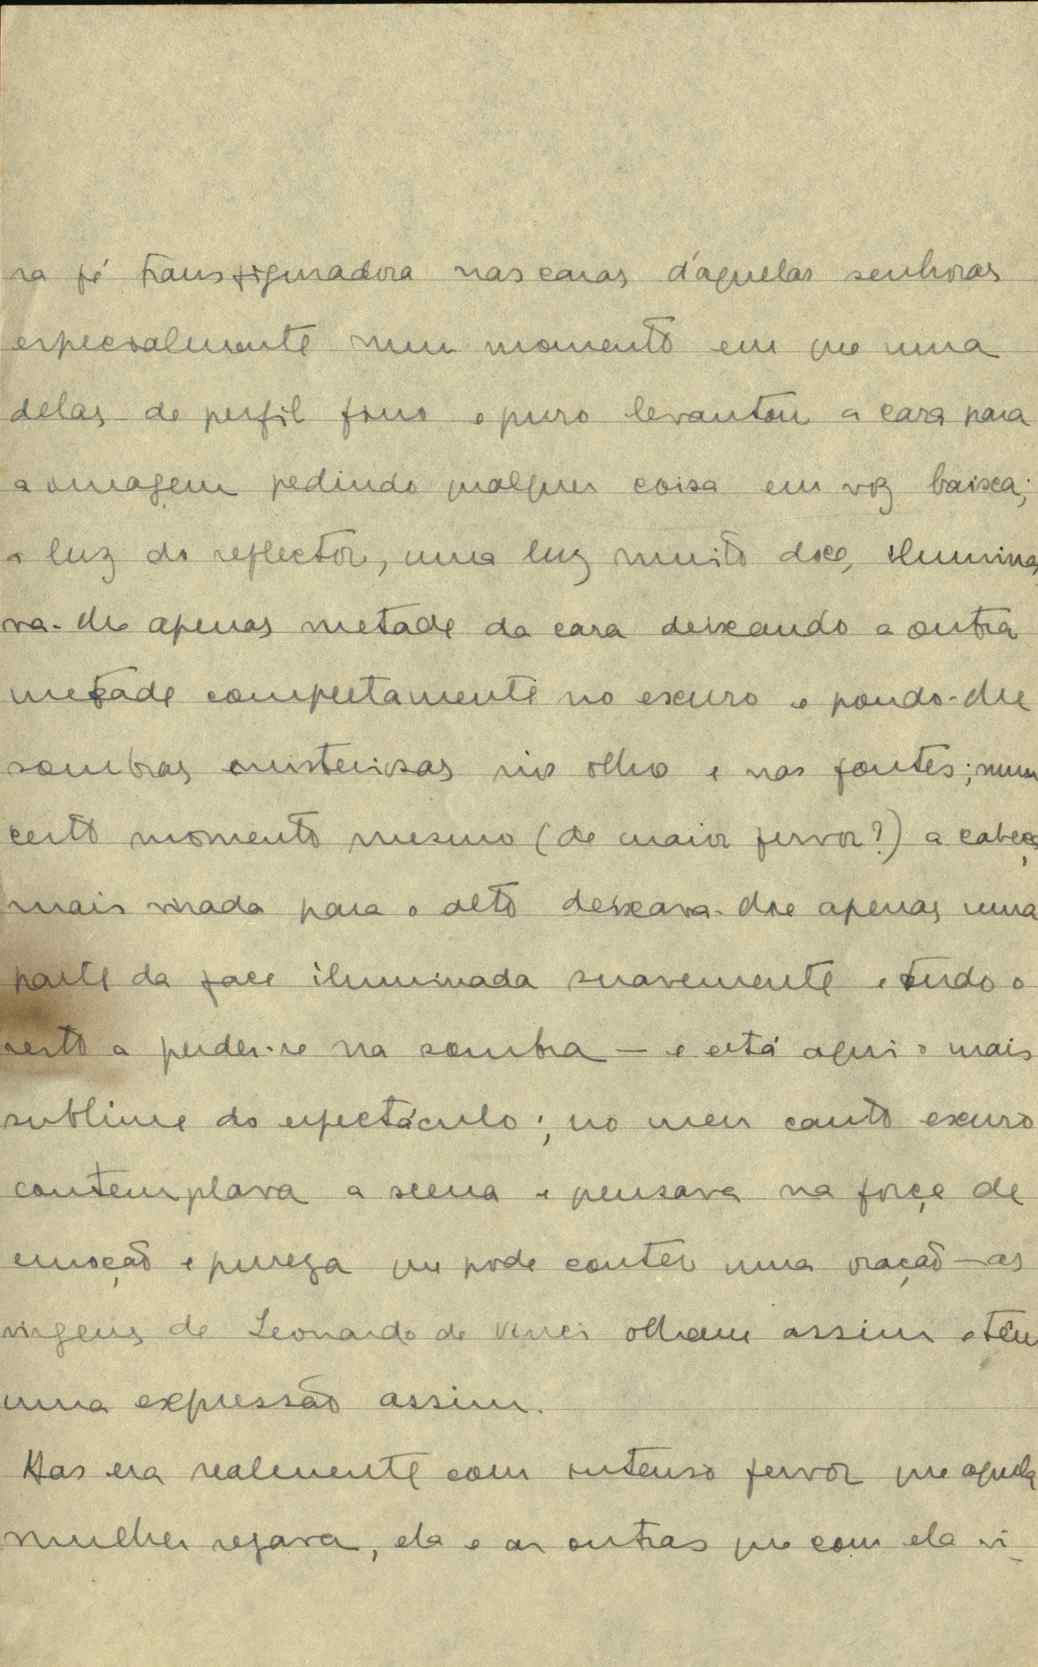 ra fé transfiguradora nas caras d'aquelas senhoras
especialmente num momento em que uma
delas de perfil fino e puro levantou a cara para
a imagem pedindo qualquer coisa em voz baixa;
a luz do reflector, uma luz muito doce, ilumina
va-lhe apenas metade da cara deixando a outra
metade completamente no escuro e pondo-lhe
sombras misteriosas no olho e nas fontes; num
certo momento mesmo (de maior fervor?) a cabeça
mais virada para o alto deixava-lhe apenas uma
parte da face iluminada suavemente e tudo o
resto a perder-se na sombra — e está aqui o mais
sublime do espectáculo; no meu canto escuro
contemplava a scena e pensava na força de
emoção e pureza que pode conter uma oração — as
virgens de Leonardo de Vinci olham assim e têm
uma expressão assim.
Mas era realmente com intenso fervor que aquela
mulher rezava, ela e as outras que com ela vi_